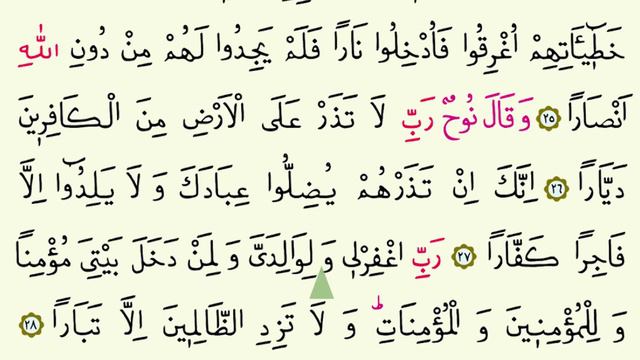 خَطٖٓيـَٔاتِهِمْ اُغْرِقُوا فَاُدْخِلُوا نَارًا فَلَمْ يَجِدُوا لَهُمْ مِنْ دُونِ اللّٰهِ
اَنْصَارًا ﴿٢٥﴾ وَقَالَ نُوحٌ رَبِّ لَا تَذَرْ عَلَى الْاَرْضِ مِنَ الْكَافِرٖينَ
دَيَّارًا ﴿٢٦﴾ اِنَّكَ اِنْ تَذَرْهُمْ يُضِلُّوا عِبَادَكَ وَلَا يَلِدُٓوا اِلَّا
فَاجِرًا كَفَّارًا ﴿٢٧﴾ رَبِّ اغْفِرْلٖى وَلِوَالِدَىَّ وَلِمَنْ دَخَلَ بَيْتِىَ مُؤْمِنًا
وَلِلْمُؤْمِنٖينَ وَالْمُؤْمِنَاتِؕ وَلَا تَزِدِ الظَّالِمٖينَ اِلَّا تَبَارًا ﴿٢٨﴾